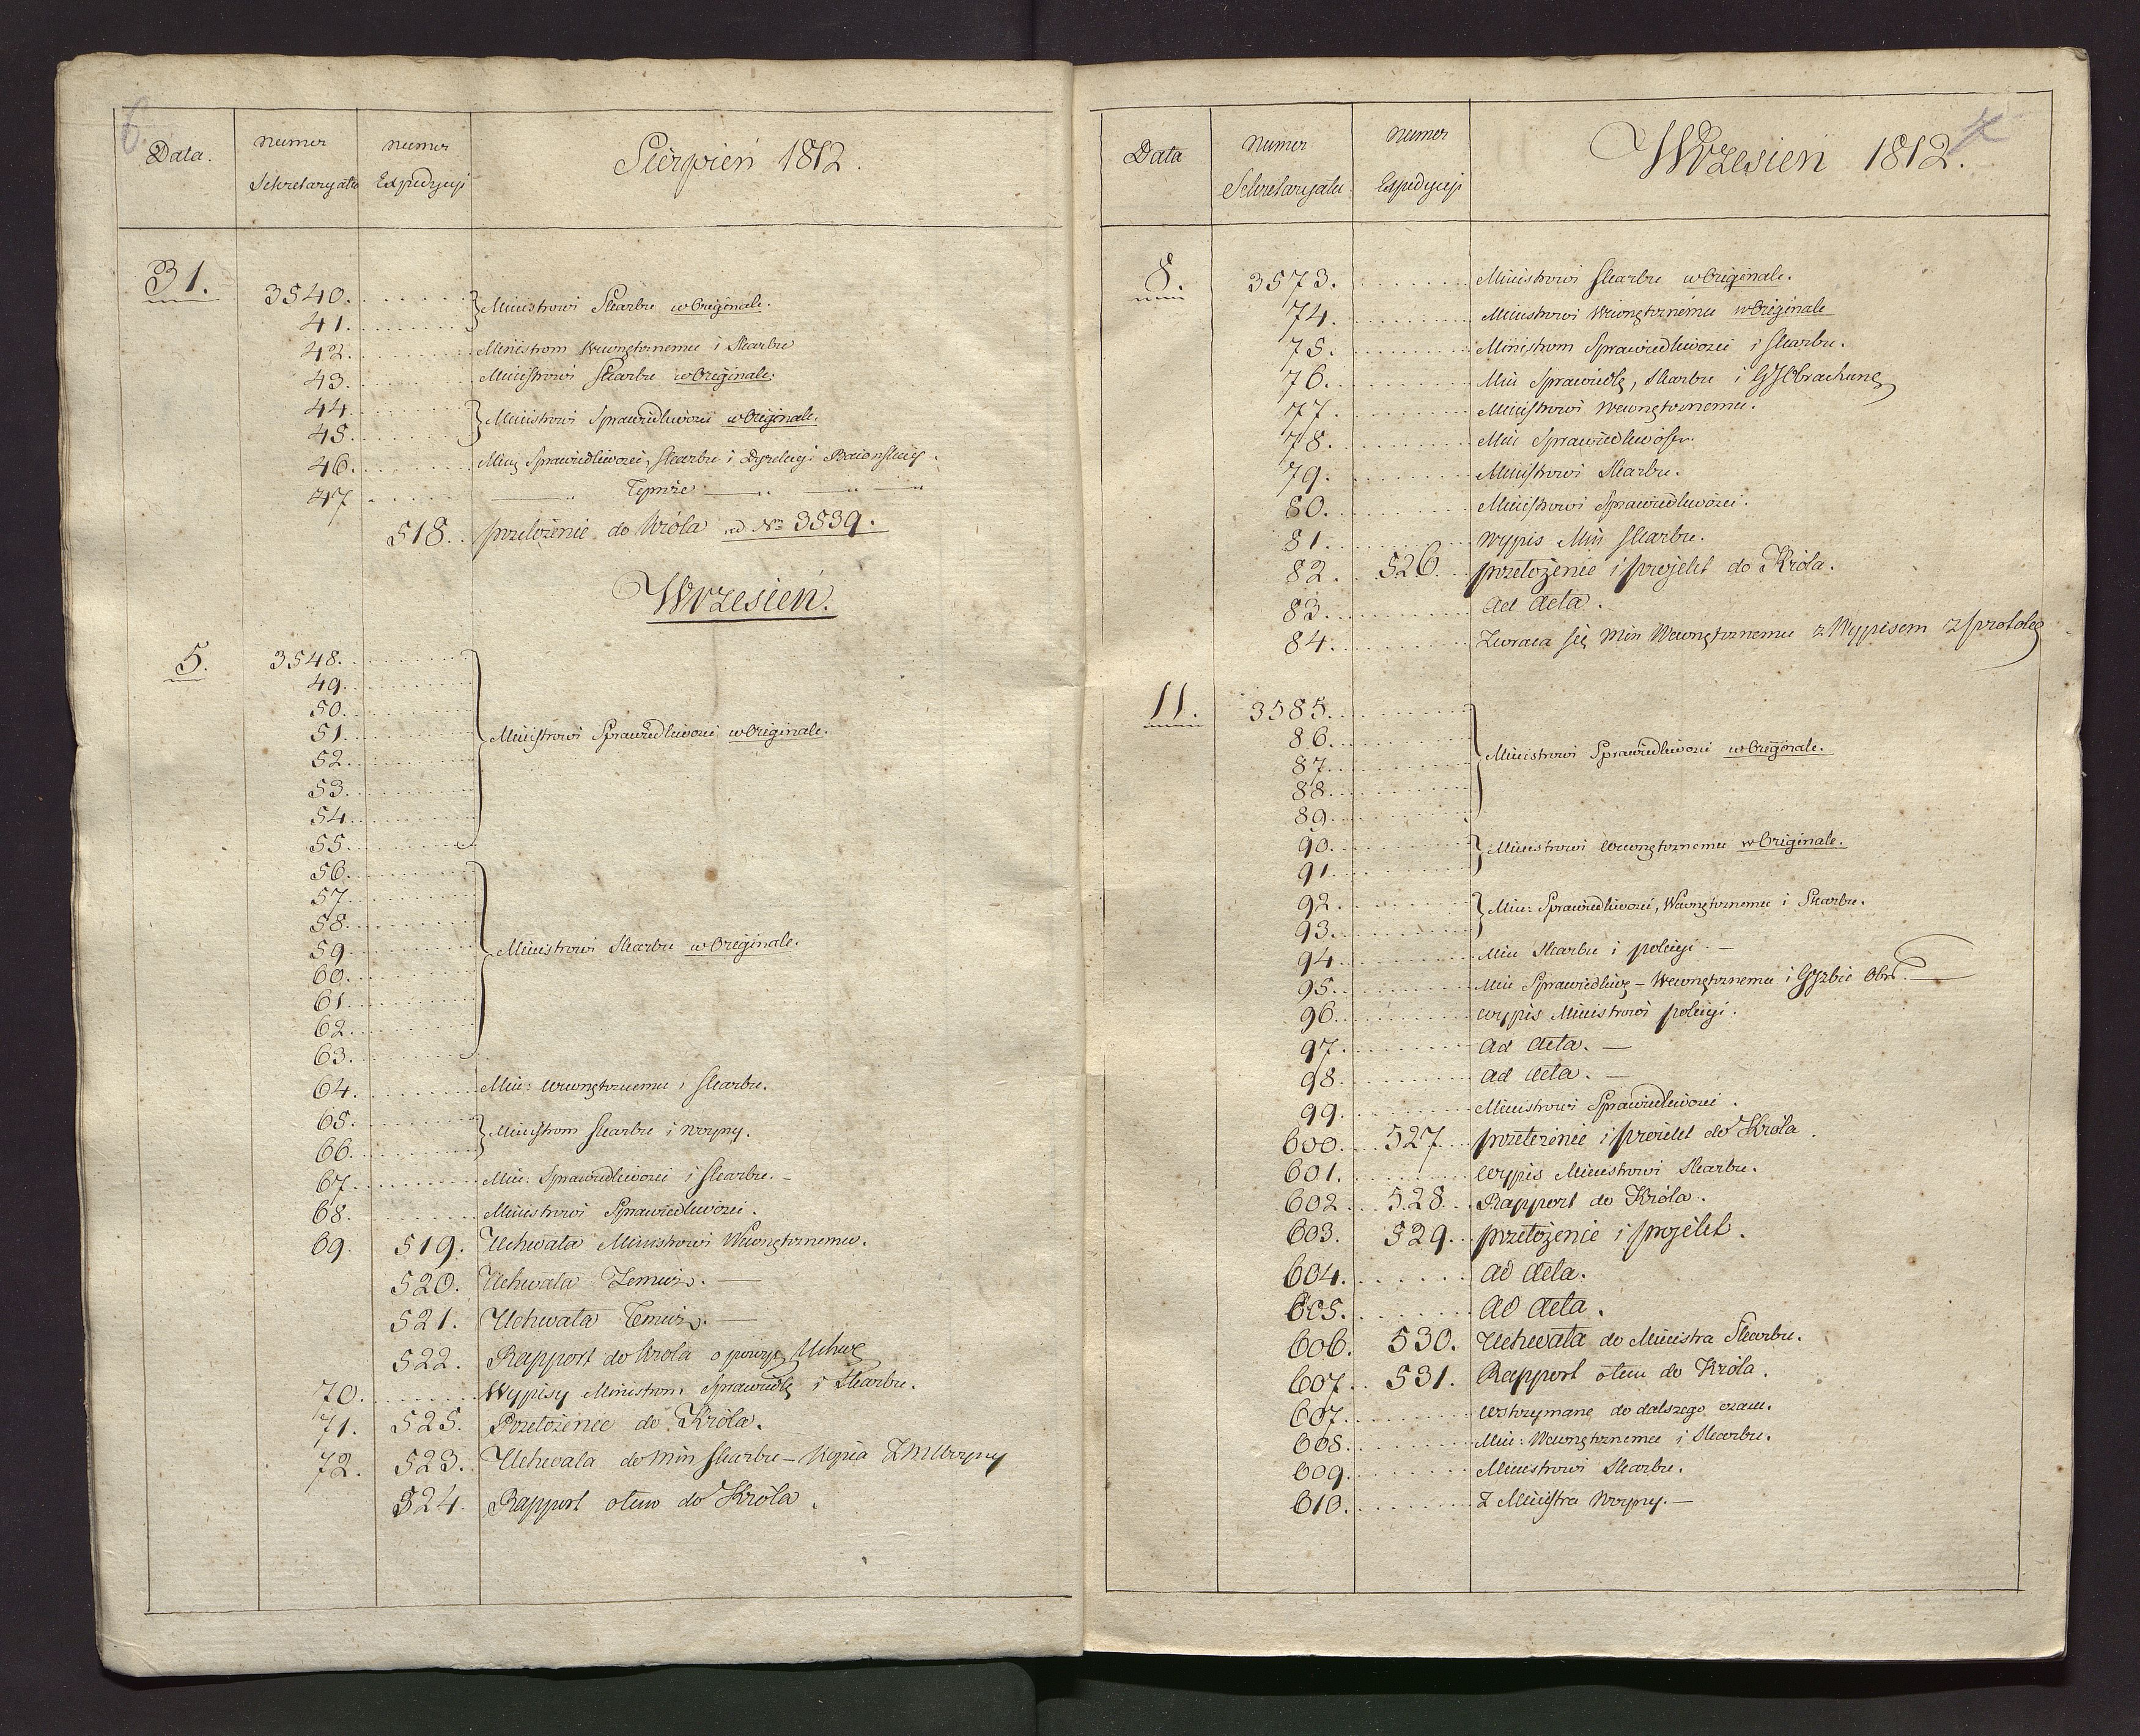 6.
Data.
Numer Sekretaryatu
Numer Expedycyi
Sierpień 1812.
31.
3540. } Ministrowi Skarbu w Originale.
41.
42. Ministrom Wewnętrznemu i Skarbu
43. Ministrowi Skarbu w Originale.
44. } Ministrowi Sprawiedliwości w Originale.
45.
46. Min Sprawiedliwości, Skarbu i Dyrekcyi Baionskiey.
47 — " Teymże — " — " — "
518. przełożenie do Króla ad No 3539.
Wrzesień.
5.
3548.
49.
50.
51. } Ministrowi Sprawiedliwości w Originale.
52.
53.
54.
55.
56.
57.
58.
59. } Ministrowi Skarbu w Originale.
60.
61.
62.
63.
64. Min: Wewnętrznemu i Skarbu.
65. } Ministrom Skarbu i Woyny.
66.
67. Min: Sprawiedliwości i Skarbu. –
68. Ministrowi Sprawiedliwości.
69. 519. Uchwała Ministrowi Wewnętrznemu.
520. Uchwała Temuż. —
521. Uchwała Temuż. —
522. Rapport do Króla o powyż Uchw
70. Wypisy Ministrom Sprawiedl i Skarbu.
71. 525. Przełożenie do Króla.
72. 523. Uchwała do Min Skarbu – Kopia Woyny
524. Rapport o tem do Króla.
7
Data
Numer Sekretaryatu.
Numer Expedycyi
Wrzesień 1812.
8.
3573. Ministrowi Skarbu w Originale.
74. Ministrowi Wewnętrznému w Originale
75. Ministrom Sprawiedliwości i Skarbu.
76. Min Sprawiedl, Skarbu i Obrachung
77. Ministrowi Wewnętrznemu.
78. Min Sprawiedliwości.
79. Ministrowi Skarbu.
80. Ministrowi Sprawiedliwości.
81. Wypis Min Skarbu.
82. 526. przełożenie i projekt do Króla.
83. ad acta.
84. Zwraca się Min Wewnętrznemu z Wypisem z protok
11.
3585.
86.
87. } Ministrowi Sprawiedliwości w Originale.
88.
89.
90. } Ministrowi Wewnętrznemu w Originale.
91.
92. } Min: Sprawiedliwości, Wewnętrznemu i Skarbu.
93.
94. Min Skarbu i policyi –
95. Min Sprawiedliw – Wewnętrznemu i Gł Izbie Obr.
96. wypis Ministrowi policyi.
97. ad acta. —
98. ad acta. —
99. Ministrowi Sprawiedliwości.
600. 527. przełożenie i projekt do Króla.
601. wypis Ministrowi Skarbu.
602. 528. Rapport do Króla.
603. 529. przełożenie i projekt.
604. ad acta.
605. ad acta.
606. 530. Uchwała do Ministra Skarbu.
607. 531. Rapport o tem do Króla.
607. wstrzymane do dalszego czasu.
608. Min: Wewnętrznemu i Skarbu.
609. Ministrowi Skarbu.
610. Z Ministra Woyny. —